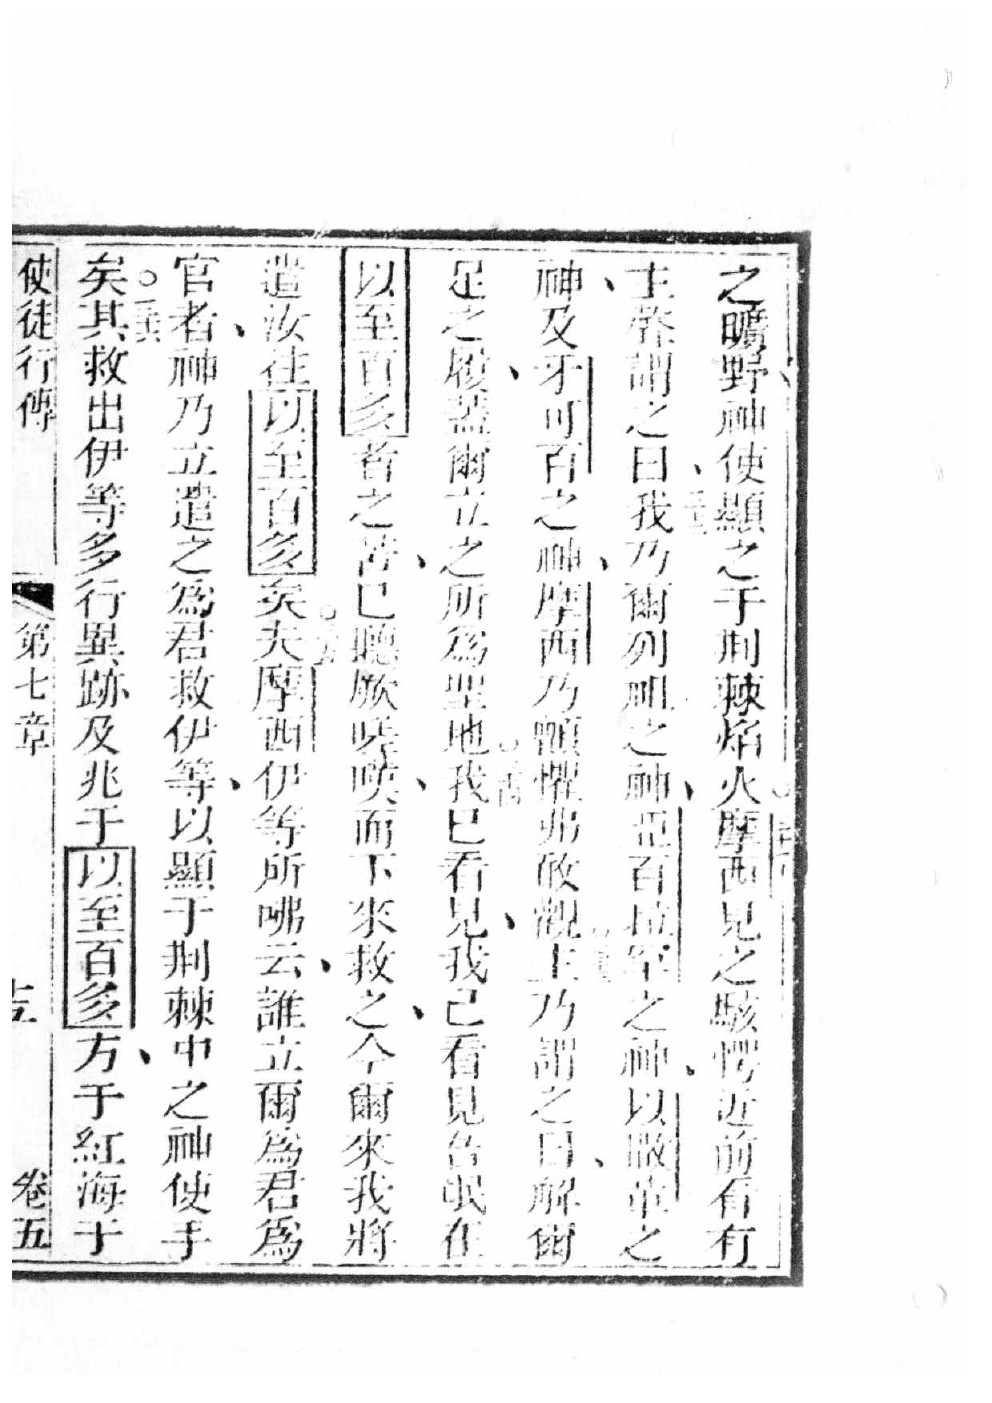 之曠野神使顯之于荆棘焰火摩西見之駭愕近前看有
主聲謂之曰我乃爾列祖之神亞百拉罕之神以撒革之
神及牙可百之神摩西乃顫懼弗敢觀主乃謂之曰解爾
足之履蓋爾立之所為聖地我已看見我己看見吾民在
以至百多者之苦已聽厥嘆而下來救之今爾來我將
遣汝往以至百多矣夫摩西伊等所咈云誰立爾為君為
官者神乃立遣之為君救伊等以顯于荆棘中之神使手
矣其救出伊等多行異跡及兆于以至百多方于紅海于
使徒行傳 第七章 卷五